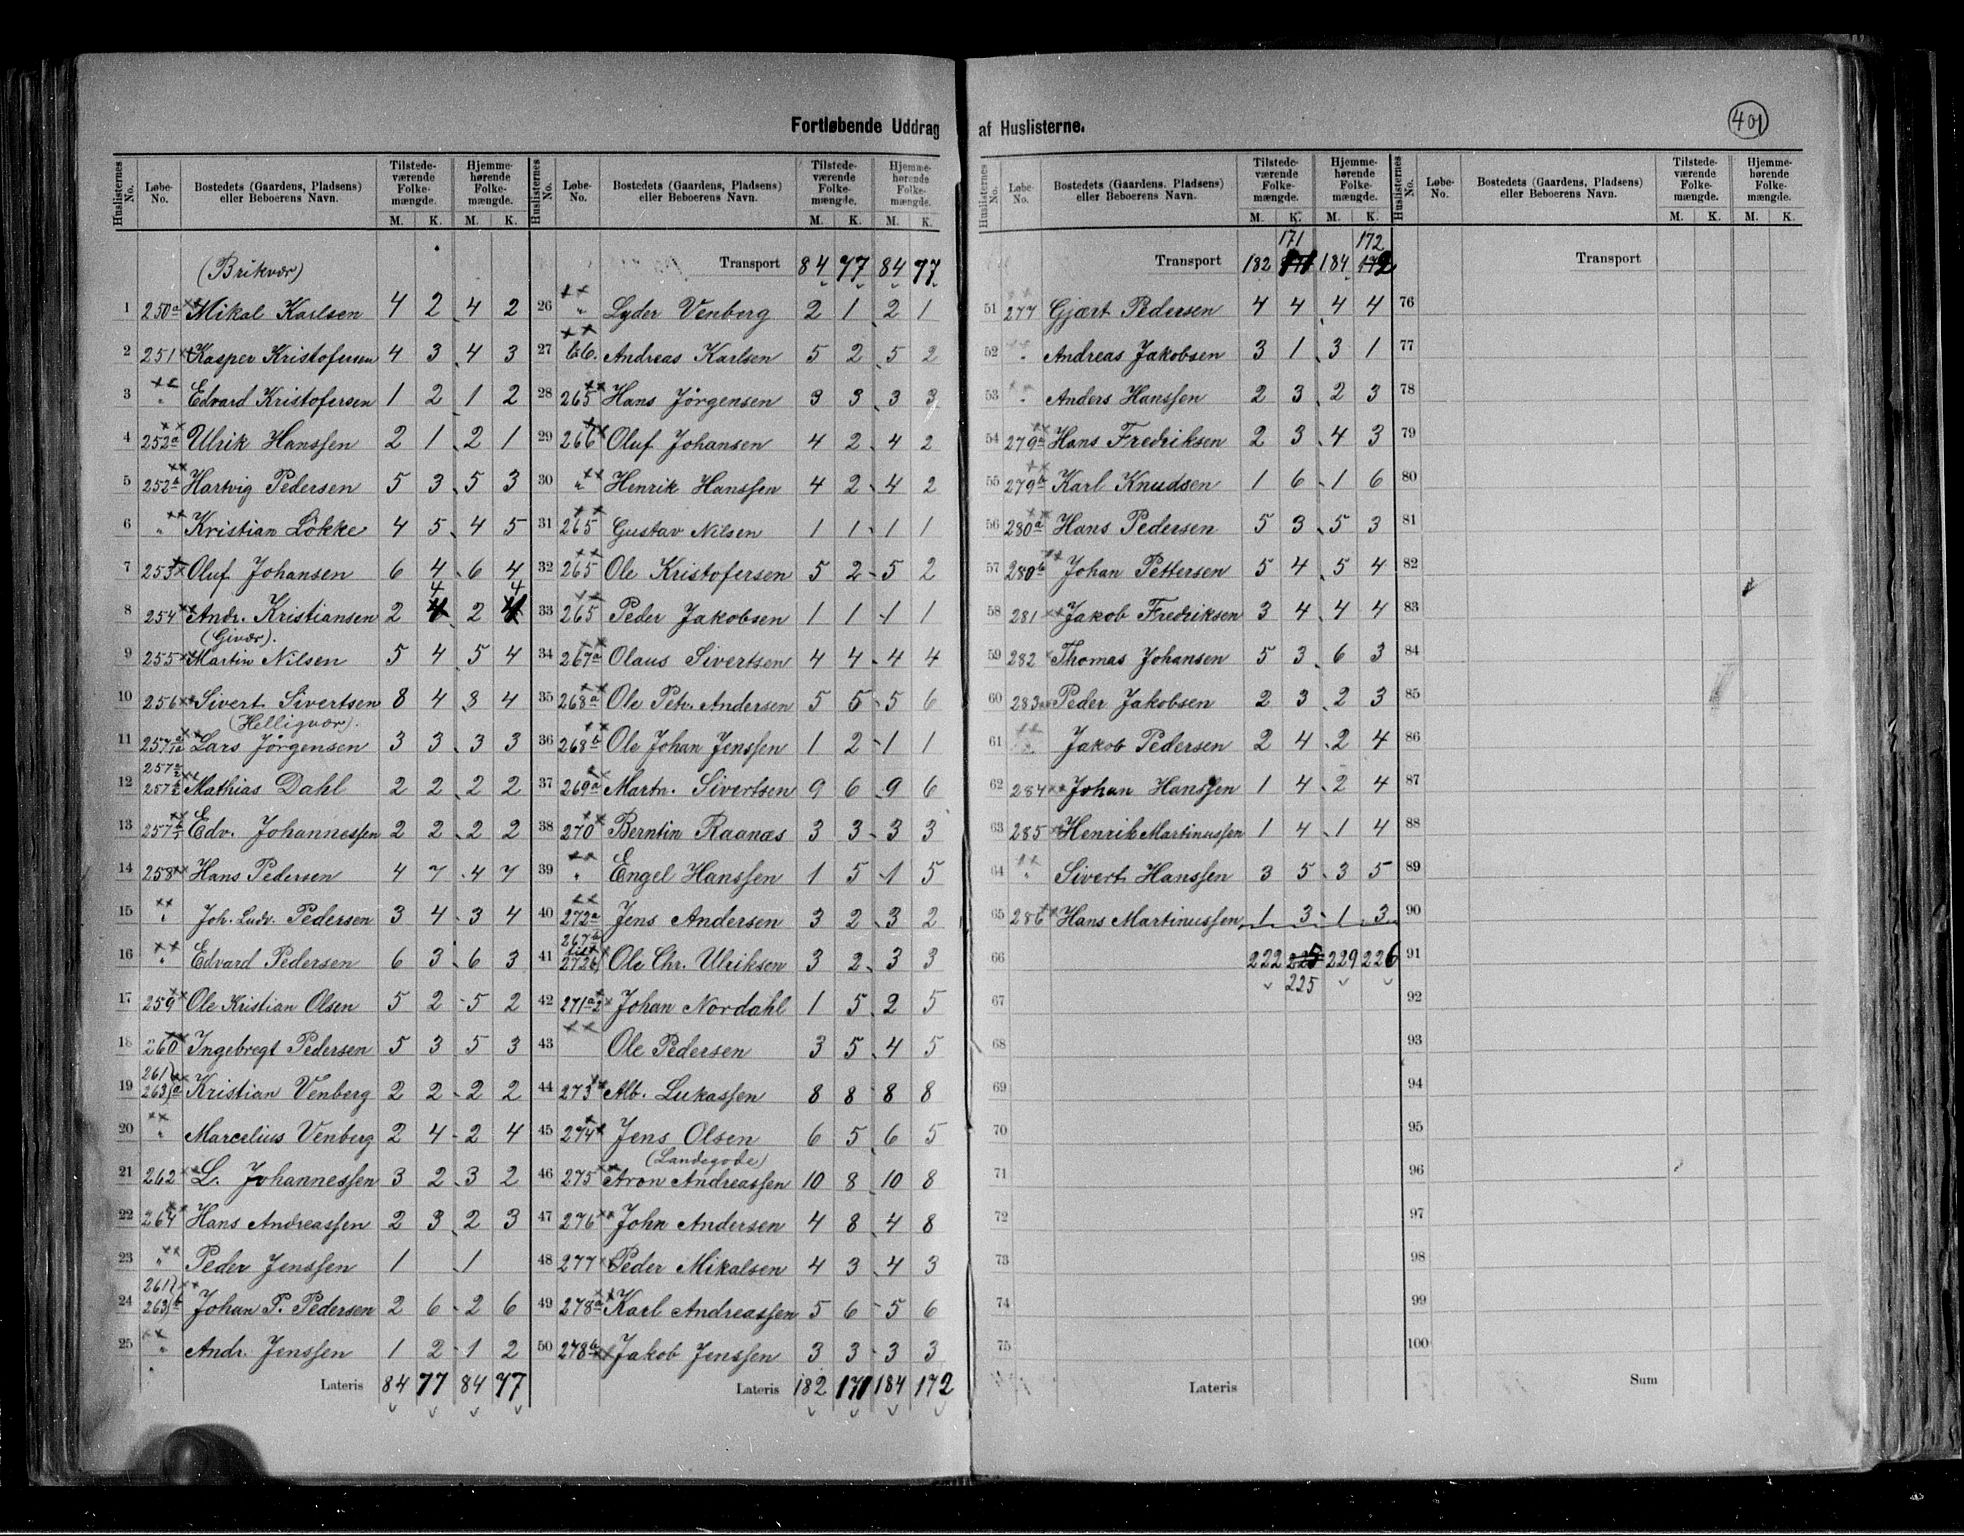 401
Fortløbende Uddrag af Huslisterne.
Huslisternes No. | Løbe-No. | Bostedets (Gaardens, Pladsens) eller Beboerens Navn. | Tilstedeværende Folkemængde. M. K. | Hjemmehørende Folkemængde. M. K.
(Brikvær)
1 250a Mikal Karlsen 4 2 4 2
2 251 Kasper Kristofersen 4 3 4 3
3 " Edvard Kristofersen 1 2 1 2
4 252a Ulrik Hanssen 2 1 2 1
5 252b Hartvig Pedersen 5 3 5 3
6 " Kristian Løkke 4 5 4 5
7 253 Oluf Johansen 6 4 6 4
8 254 Andr. Kristiansen 2 4 2 4
(Givær).
9 255 Martin Nilsen 5 4 5 4
10 256 Sivert Sivertsen 8 4 8 4
(Helligvær).
11 257 Lars Jørgensen 3 3 3 3
12 257 Mathias Dahl 2 2 2 2
13 257 Edv. Johannessen 2 2 2 2
14 258 Hans Pedersen 4 7 4 7
15 " Joh. Ludv. Pedersen 3 4 3 4
16 " Edvard Pedersen 6 3 6 3
17 259 Ole Kristian Olsen 5 2 5 2
18 260 Ingebregt Pedersen 5 3 5 3
19 261 263 a Kristian Venberg 2 2 2 2
20 " Marcelius Venberg 2 4 2 4
21 262 L. Johannessen 3 2 3 2
22 264 Hans Andreassen 2 3 2 3
23 " Peder Jenssen 1 1
24 261 263 b Johan P. Pedersen 2 6 2 6
25 " Andr. Jenssen 1 2 1 2
Lateris 84 77 84 77
Huslisternes No. | Løbe-No. | Bostedets (Gaardens, Pladsens) eller Beboerens Navn. | Tilstedeværende Folkemængde. M. K. | Hjemmehørende Folkemængde. M. K.
Transport 84 77 84 77
26 " Lyder Venberg 2 1 2 1
27 Andreas Karlsen 5 2 5 2
28 265 Hans Jørgensen 3 3 3 3
29 266 Oluf Johansen 4 2 4 2
30 " Henrik Hanssen 4 2 4 2
31 265 Gustav Nilsen 1 1 1 1
32 265 Ole Kristofersen 5 2 5 2
33 265 Peder Jakobsen 1 1 1 1
34 267a Olaus Sivertsen 4 4 4 4
35 268a Ole Petr. Andersen 5 6 5 6
36 268b Ole Johan Jenssen 1 2 1 1
37 269a Martn. Sivertsen 9 6 9 6
38 270 Berntin Raanæs 3 3 3 3
39 " Engel Hanssen 1 5 1 5
40 272a Jens Andersen 3 2 3 2
41 267b 272b Ole Chr. Ulriksen 3 2 3 3
42 271a2 Johan Nordahl 1 5 2 5
43 Ole Pedersen 3 5 4 5
44 273 Alb. Lukassen 8 8 8 8
45 274 Jens Olsen 6 5 6 5
(Landegode)
46 275 Aron Andreassen 10 8 10 8
47 276 John Andersen 4 8 4 8
48 277 Peder Mikalsen 4 3 4 3
49 278a Karl Andreassen 5 6 5 6
50 278b Jakob Jenssen 3 3 3 3
Lateris 182 171 184 172
Huslisternes No. | Løbe-No. | Bostedets (Gaardens. Pladsens) eller Beboerens Navn. | Tilstedeværende Folkemængde. M. K. | Hjemmehørende Folkemængde. M. K.
171 172
Transport 182 171 184 172
51 277 Gjært Pedersen 4 4 4 4
52 " Andreas Jakobsen 3 1 3 1
53 " Anders Hanssen 2 3 2 3
54 279a Hans Fredriksen 2 3 4 3
55 279b Karl Knudsen 1 6 1 6
56 280a Hans Pedersen 5 3 5 3
57 280b Johan Pettersen 5 4 5 4
58 281 Jakob Fredriksen 3 4 4 4
59 282 Thomas Johansen 5 3 6 3
60 283 Peder Jakobsen 2 3 2 3
61 " Jakob Pedersen 2 4 2 4
62 284 Johan Hanssen 1 4 2 4
63 285 Henrik Martinussen 1 4 1 4
64 " Sivert Hanssen 3 5 3 5
65 286 Hans Martinussen 1 3 1 3
66 222 225 229 226
225
67
68
69
70
71
72
73
74
75
Lateris
Huslisternes No. | Løbe-No. | Bostedets (Gaardens, Pladsens) eller Beboerens Navn. | Tilstedeværende Folkemængde. M. K. | Hjemmehørende Folkemængde. M. K.
Transport
76
77
78
79
80
81
82
83
84
85
86
87
88
89
90
91
92
93
94
95
96
97
98
99
100
Sum